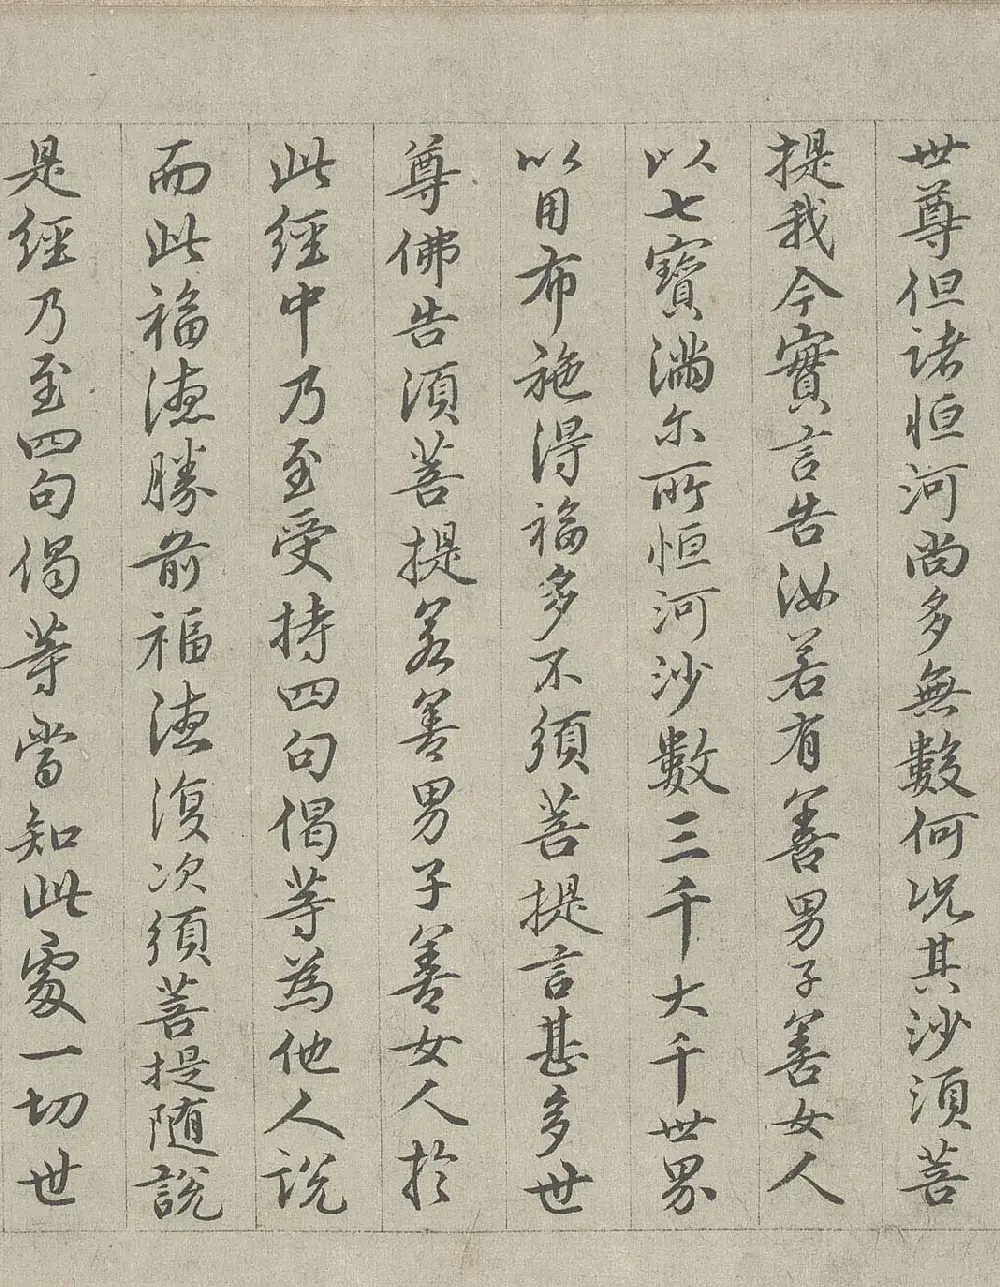 世尊但諸恒河尚多無數何况其沙須菩
提我今實言告汝若有善男子善女人
以七寶滿尔所恒河沙數三千大千世界
以用布施得福多不須菩提言甚多世
尊佛告須菩提若善男子善女人於
此經中乃至受持四句偈等為他人説
而此福德勝前福德復次須菩提随説
是經乃至四句偈等當知此處一切世